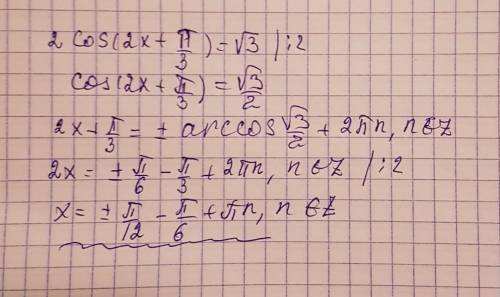 2 cos(2x + π/3) = √3 | :2
cos(2x + π/3) = √3/2
2x + π/3 = ± arccos √3/2 + 2πn, n∈Z
2x = ± π/6 − π/3 + 2πn, n∈Z | :2
x = ± π/12 − π/6 + πn, n∈Z